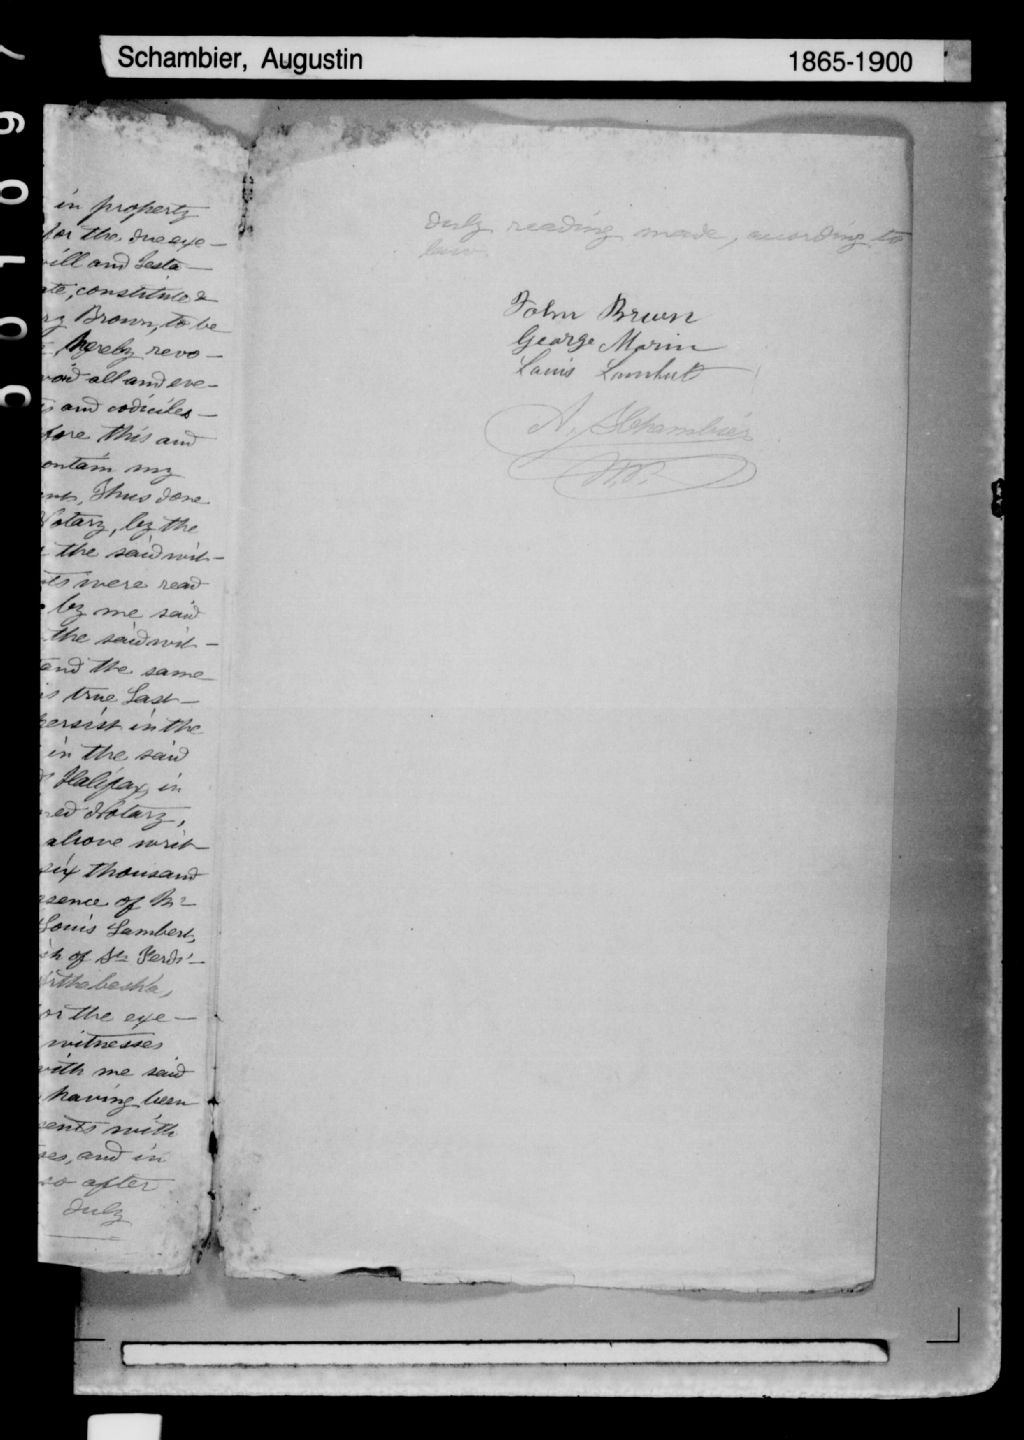 Schambier, Augustin 1865-1900
in property
for the due exe-
will and Testa-
ate, constitute &
ry Brown, to be
hereby revo-
void all and eve-
ts and codiciles
fore this and
ontain my
Thus done
Notary, by the
the said wit-
ts were read
by me said
the said wit-
and the same
is true Last
persist in the
in the said
Halifax, in
ned Notary,
above writ
six thousand
esence of Mr
Louis Lambert,
sh of St. Ferdi-
ithebeska,
for the exe-
witnesses
with me said
having been
sents with
ses, and in
so after
duly
duly reading made, according to
law.
John Brown
George Morin
Louis Lambert
A. Schambier
N.P.